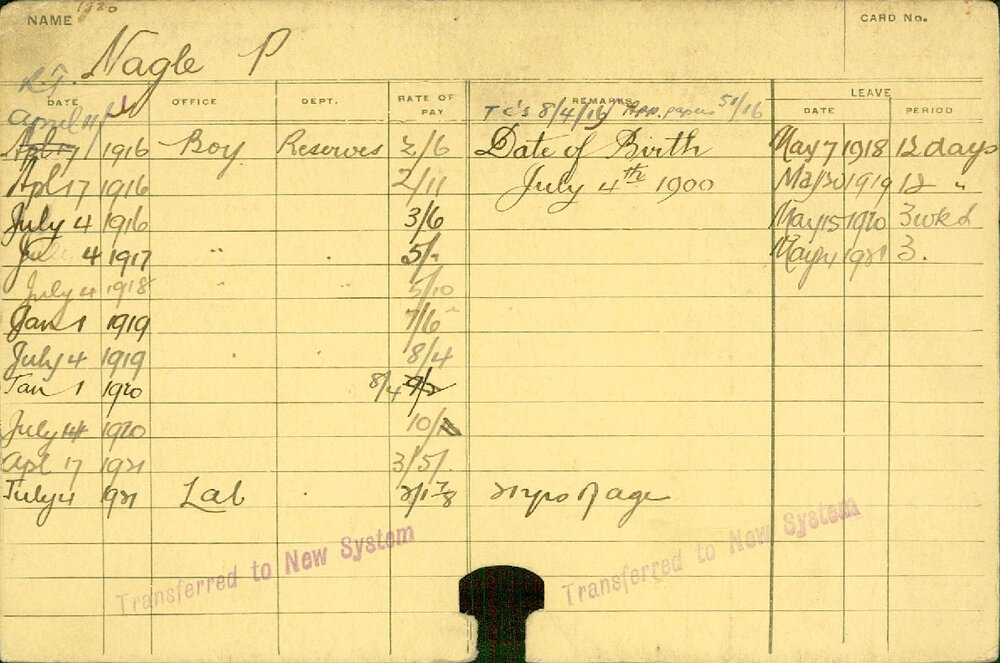 NAME 1320 CARD No.
Nagle P
R.T.
DATE OFFICE DEPT. RATE OF PAY REMARKS LEAVE DATE PERIOD
April 11/ T C's 8/4/16 App. papers 51/16
Apl 17/ 1916 Boy Reserves 2/6 Date of Birth May 7 1918 12 days
Apl 17 1916 2/11 July 4th 1900 May 30 1919 12 "
July 4 1916 3/6 May 15 1920 3 wks
July 4 1917 " 5/- May 1921 3.
July 4 1918 " " 5/10
Jan 1 1919 7/6
July 4 1919 8/4
Jan 1 1920 8/4 9/2
July 4 1920 10/
Apl 17 1921 3/5/.
July 4 1921 Lab 21 yrs of age
Transferred to New System Transferred to New System